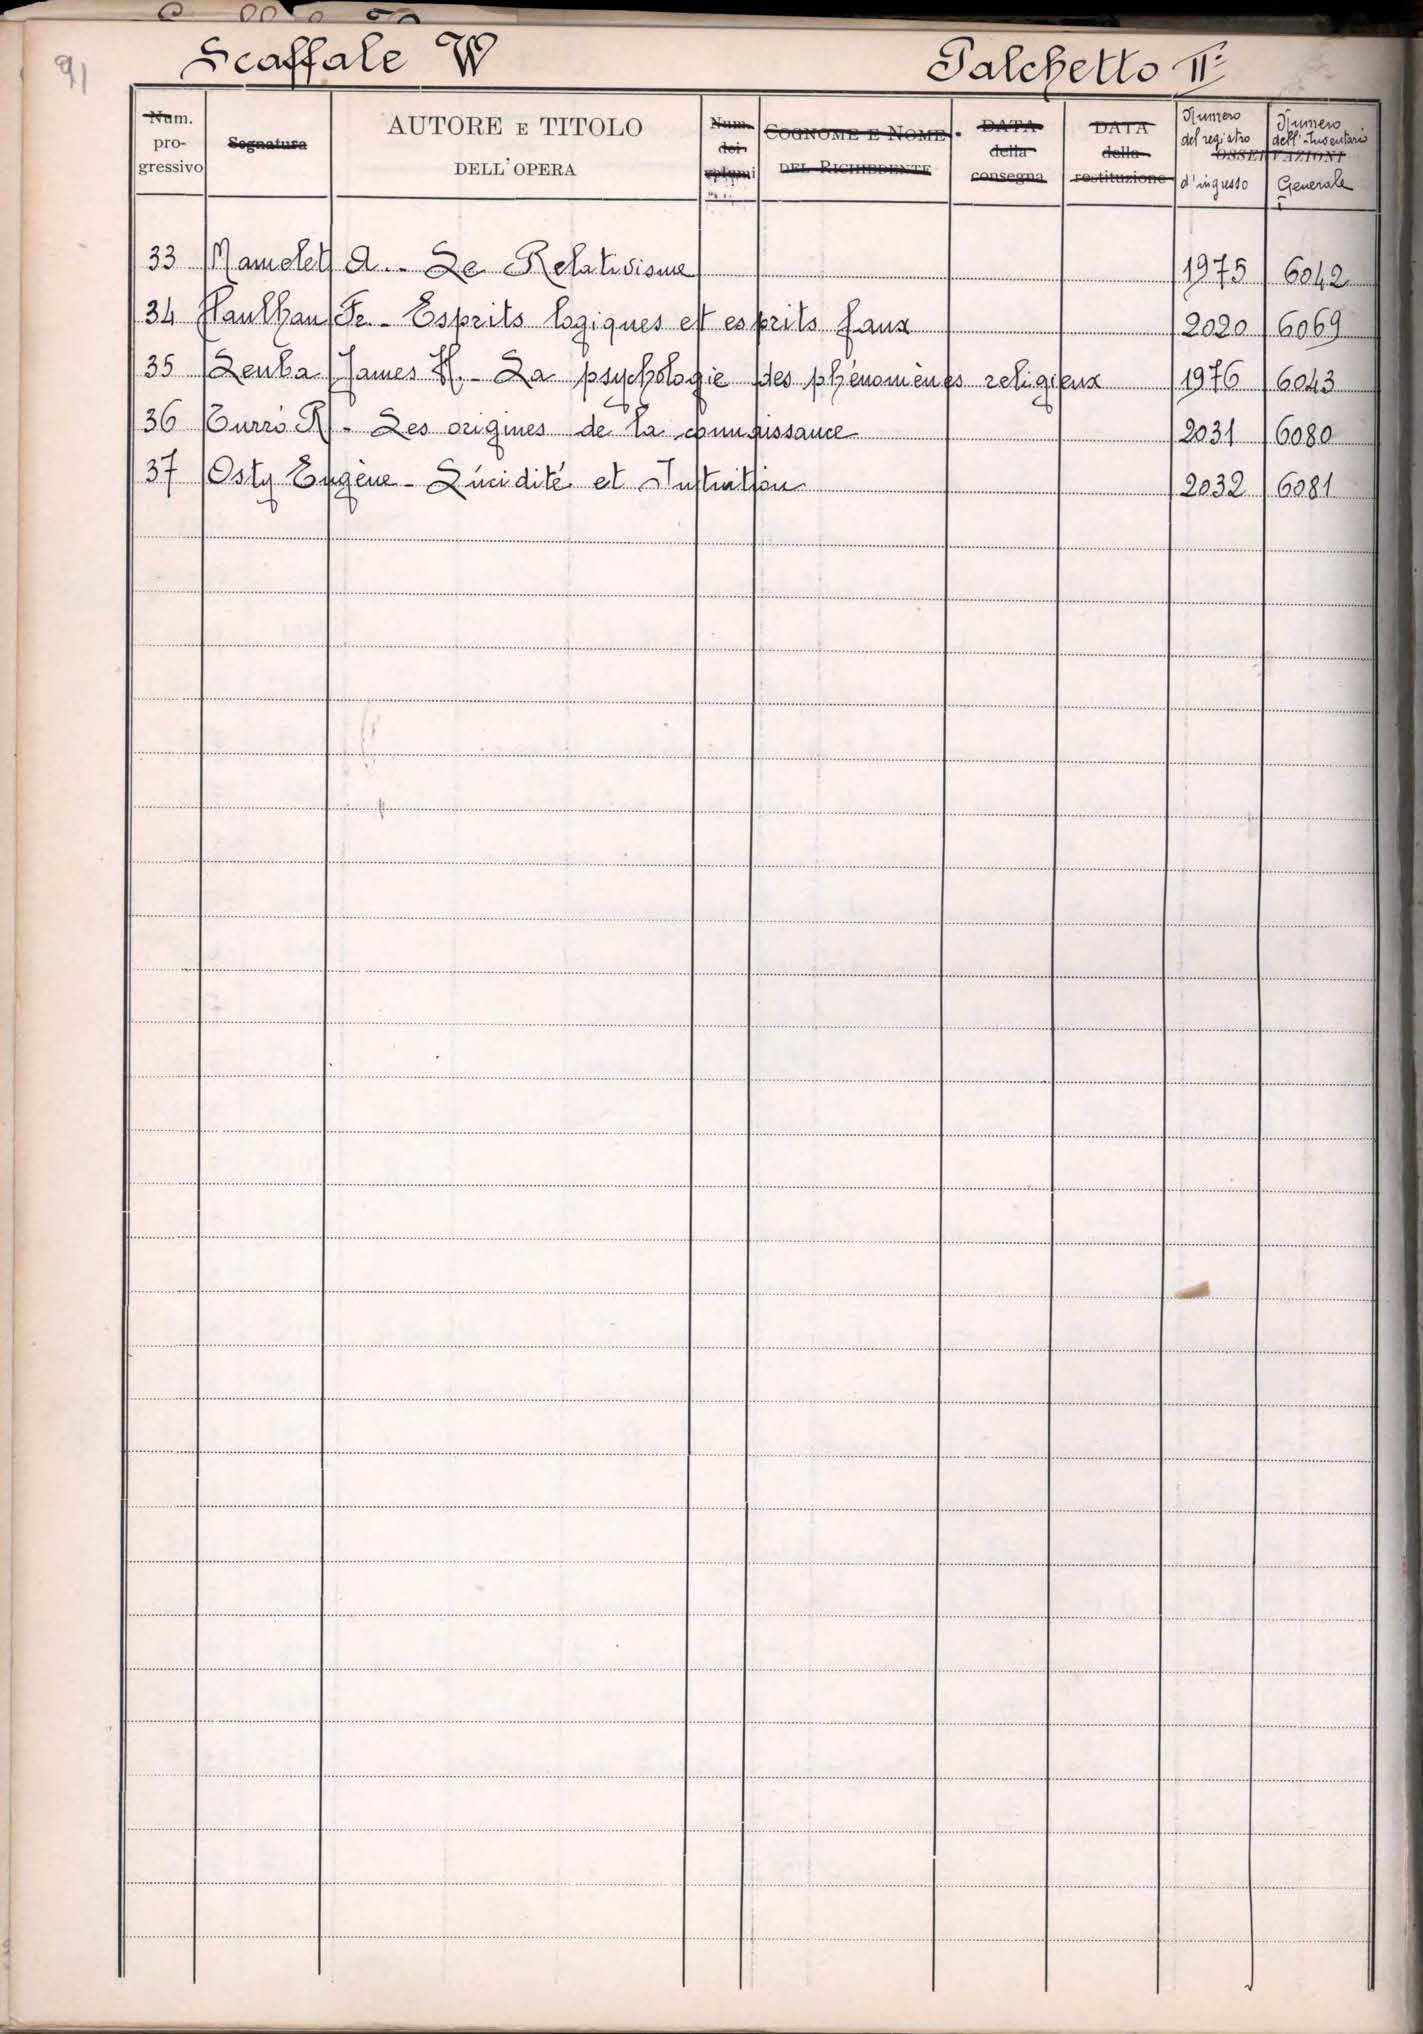 91
Scaffale W Palchetto II°
Num. progressivo Segnatura AUTORE E TITOLO DELL'OPERA Num. dei volumi COGNOME E NOME DEL RICHIEDENTE DATA della consegna DATA della restituzione OSSERVAZIONI Numero del registro d'ingresso Numero dell'Inventario Generale
33 Mamelet A. - Le Relativisme 1975 6042
34 Paulhan Fr. - Esprits logiques et esprits faux 2020 6069
35 Leuba James H. - La psychologie des phénomènes religieux 1976 6043
36 Turró R - Les origines de la connaissance 2031 6080
37 Osty Eugène - Lucidité et Intuition 2032 6081